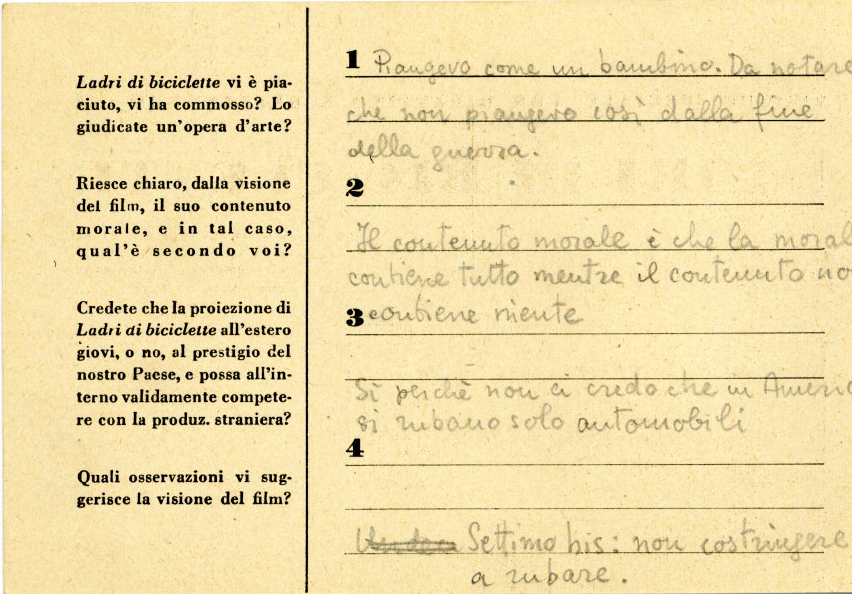 Ladri di biciclette vi è pia-
ciuto, vi ha commosso? Lo
giudicate un'opera d'arte?
Riesce chiaro, dalla visione
del film, il suo contenuto
morale, e in tal caso,
qual'è secondo voi?
Credete che la proiezione di
Ladri di biciclette all'estero
giovi, o no, al prestigio del
nostro Paese, e possa all'in-
terno validamente compete-
re con la produz. straniera?
Quali osservazioni vi sug-
gerisce la visione del film?
1 Piangevo come un bambino. Da notare
che non piangevo così dalla fine
della guerra.
2
Il contenuto morale è che la moral
contiene tutto mentre il contenuto no
3 contiene niente
Sì perchè non ci credo che in Americ
si rubano solo automobili
4
Settimo bis: non costringere
a rubare.